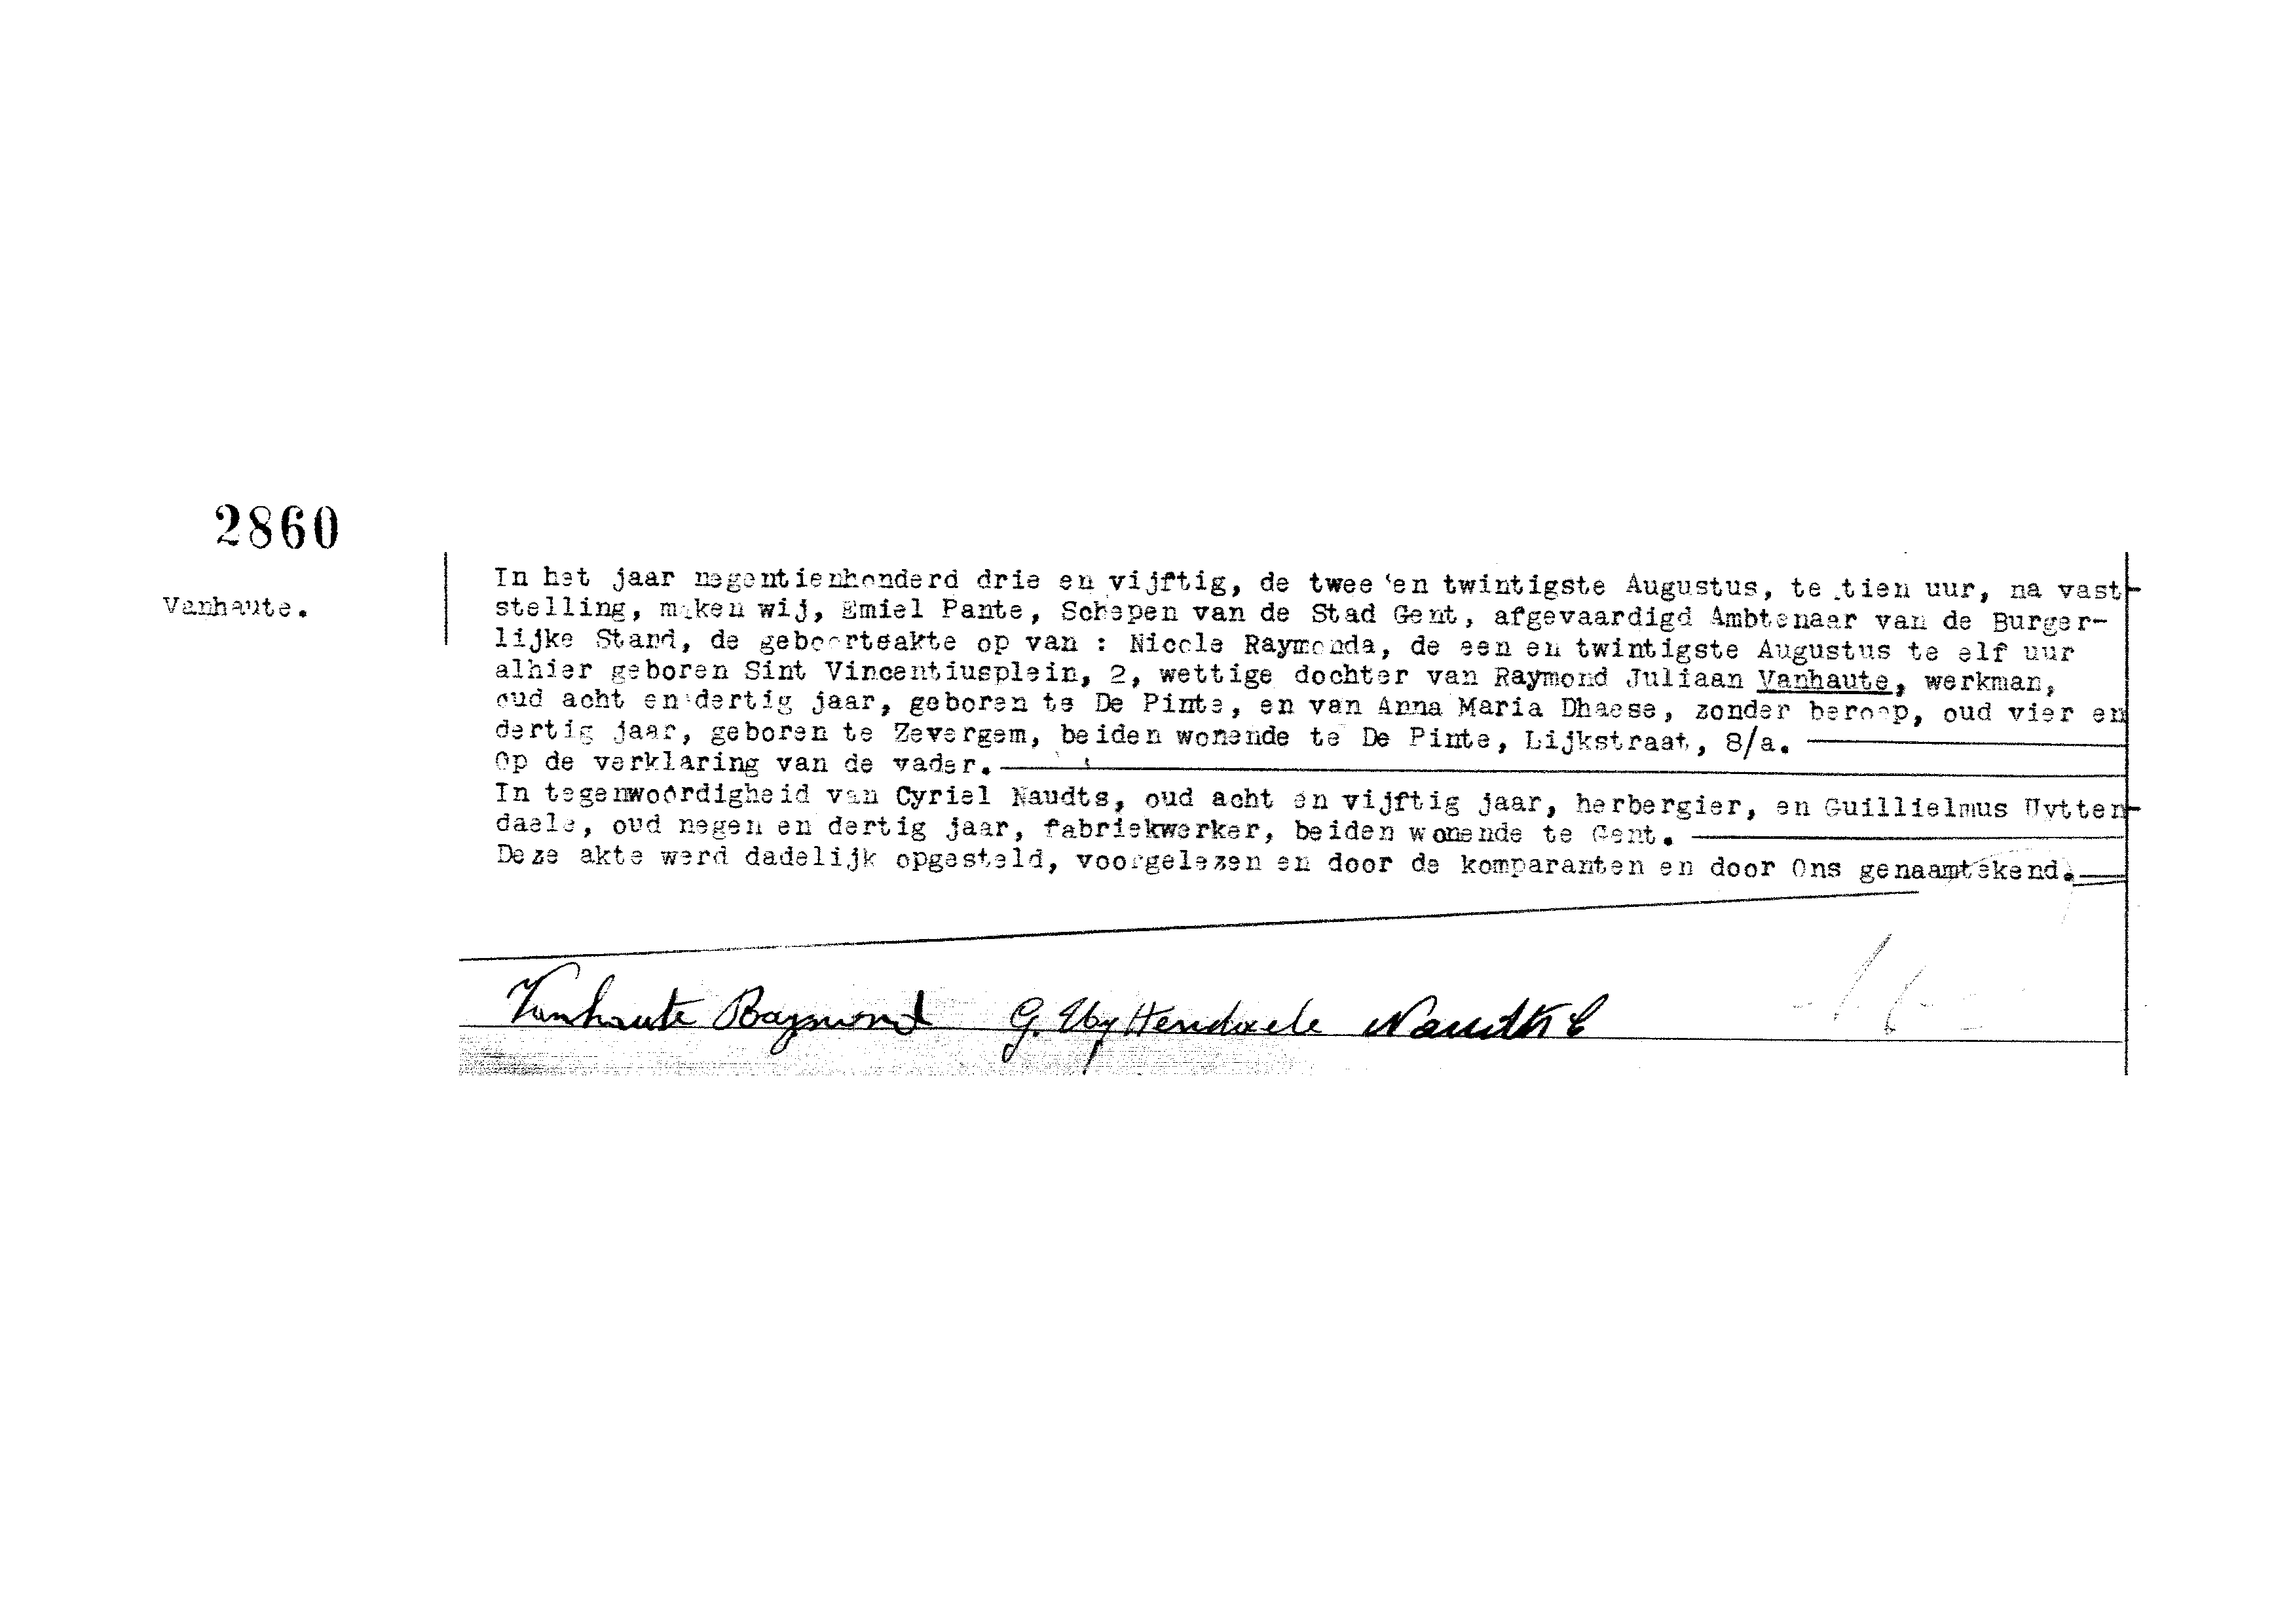 2860
Vanhaute.
In het jaar negentienhonderd drie en vijftig, de twee en twintigste Augustus, te tien uur, na vast-
stelling, maken wij, Emiel Pante, Schepen van de Stad Gent, afgevaardigd Ambtenaar van de Burger-
lijke Stand, de geboorteakte op van : Nicole Raymonda, de een en twintigste Augustus te elf uur
alhier geboren Sint Vincentiusplein, 2, wettige dochter van Raymond Juliaan Vanhaute, werkman,
oud acht en dertig jaar, geboren te De Pinte, en van Anna Maria Dhaese, zonder beroep, oud vier en
dertig jaar, geboren te Zevergem, beiden wonende te De Pinte, Lijkstraat, 8/a.
Op de verklaring van de vader.
In tegenwoordigheid van Cyriel Naudts, oud acht en vijftig jaar, herbergier, en Guillielmus Uytten-
daele, oud negen en dertig jaar, fabriekwerker, beiden wonende te Gent.
Deze akte werd dadelijk opgesteld, voorgelezen en door de komparanten en door Ons genaamtekend.
Vanhaute Raymond G. Uyttendaele Naudts C